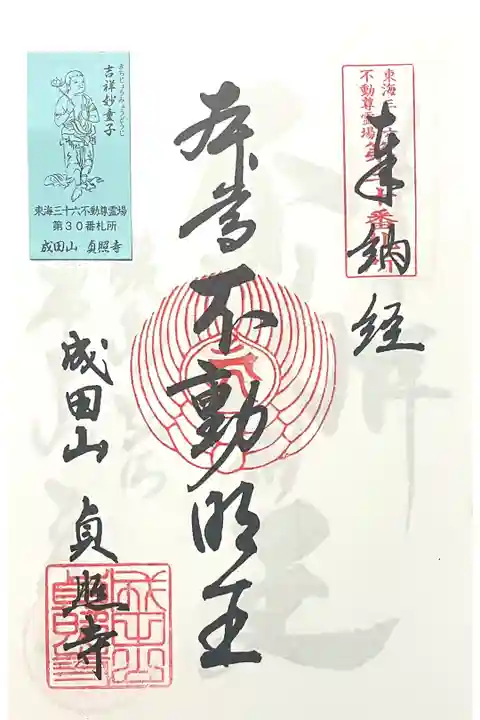 東海三十六
不動尊霊場
奉納経
本尊不動明王
きちじょうみょうどうじ
吉祥妙童子
東海三十六不動尊霊場
第30番札所
成田山 貞照寺
成田山 貞照寺